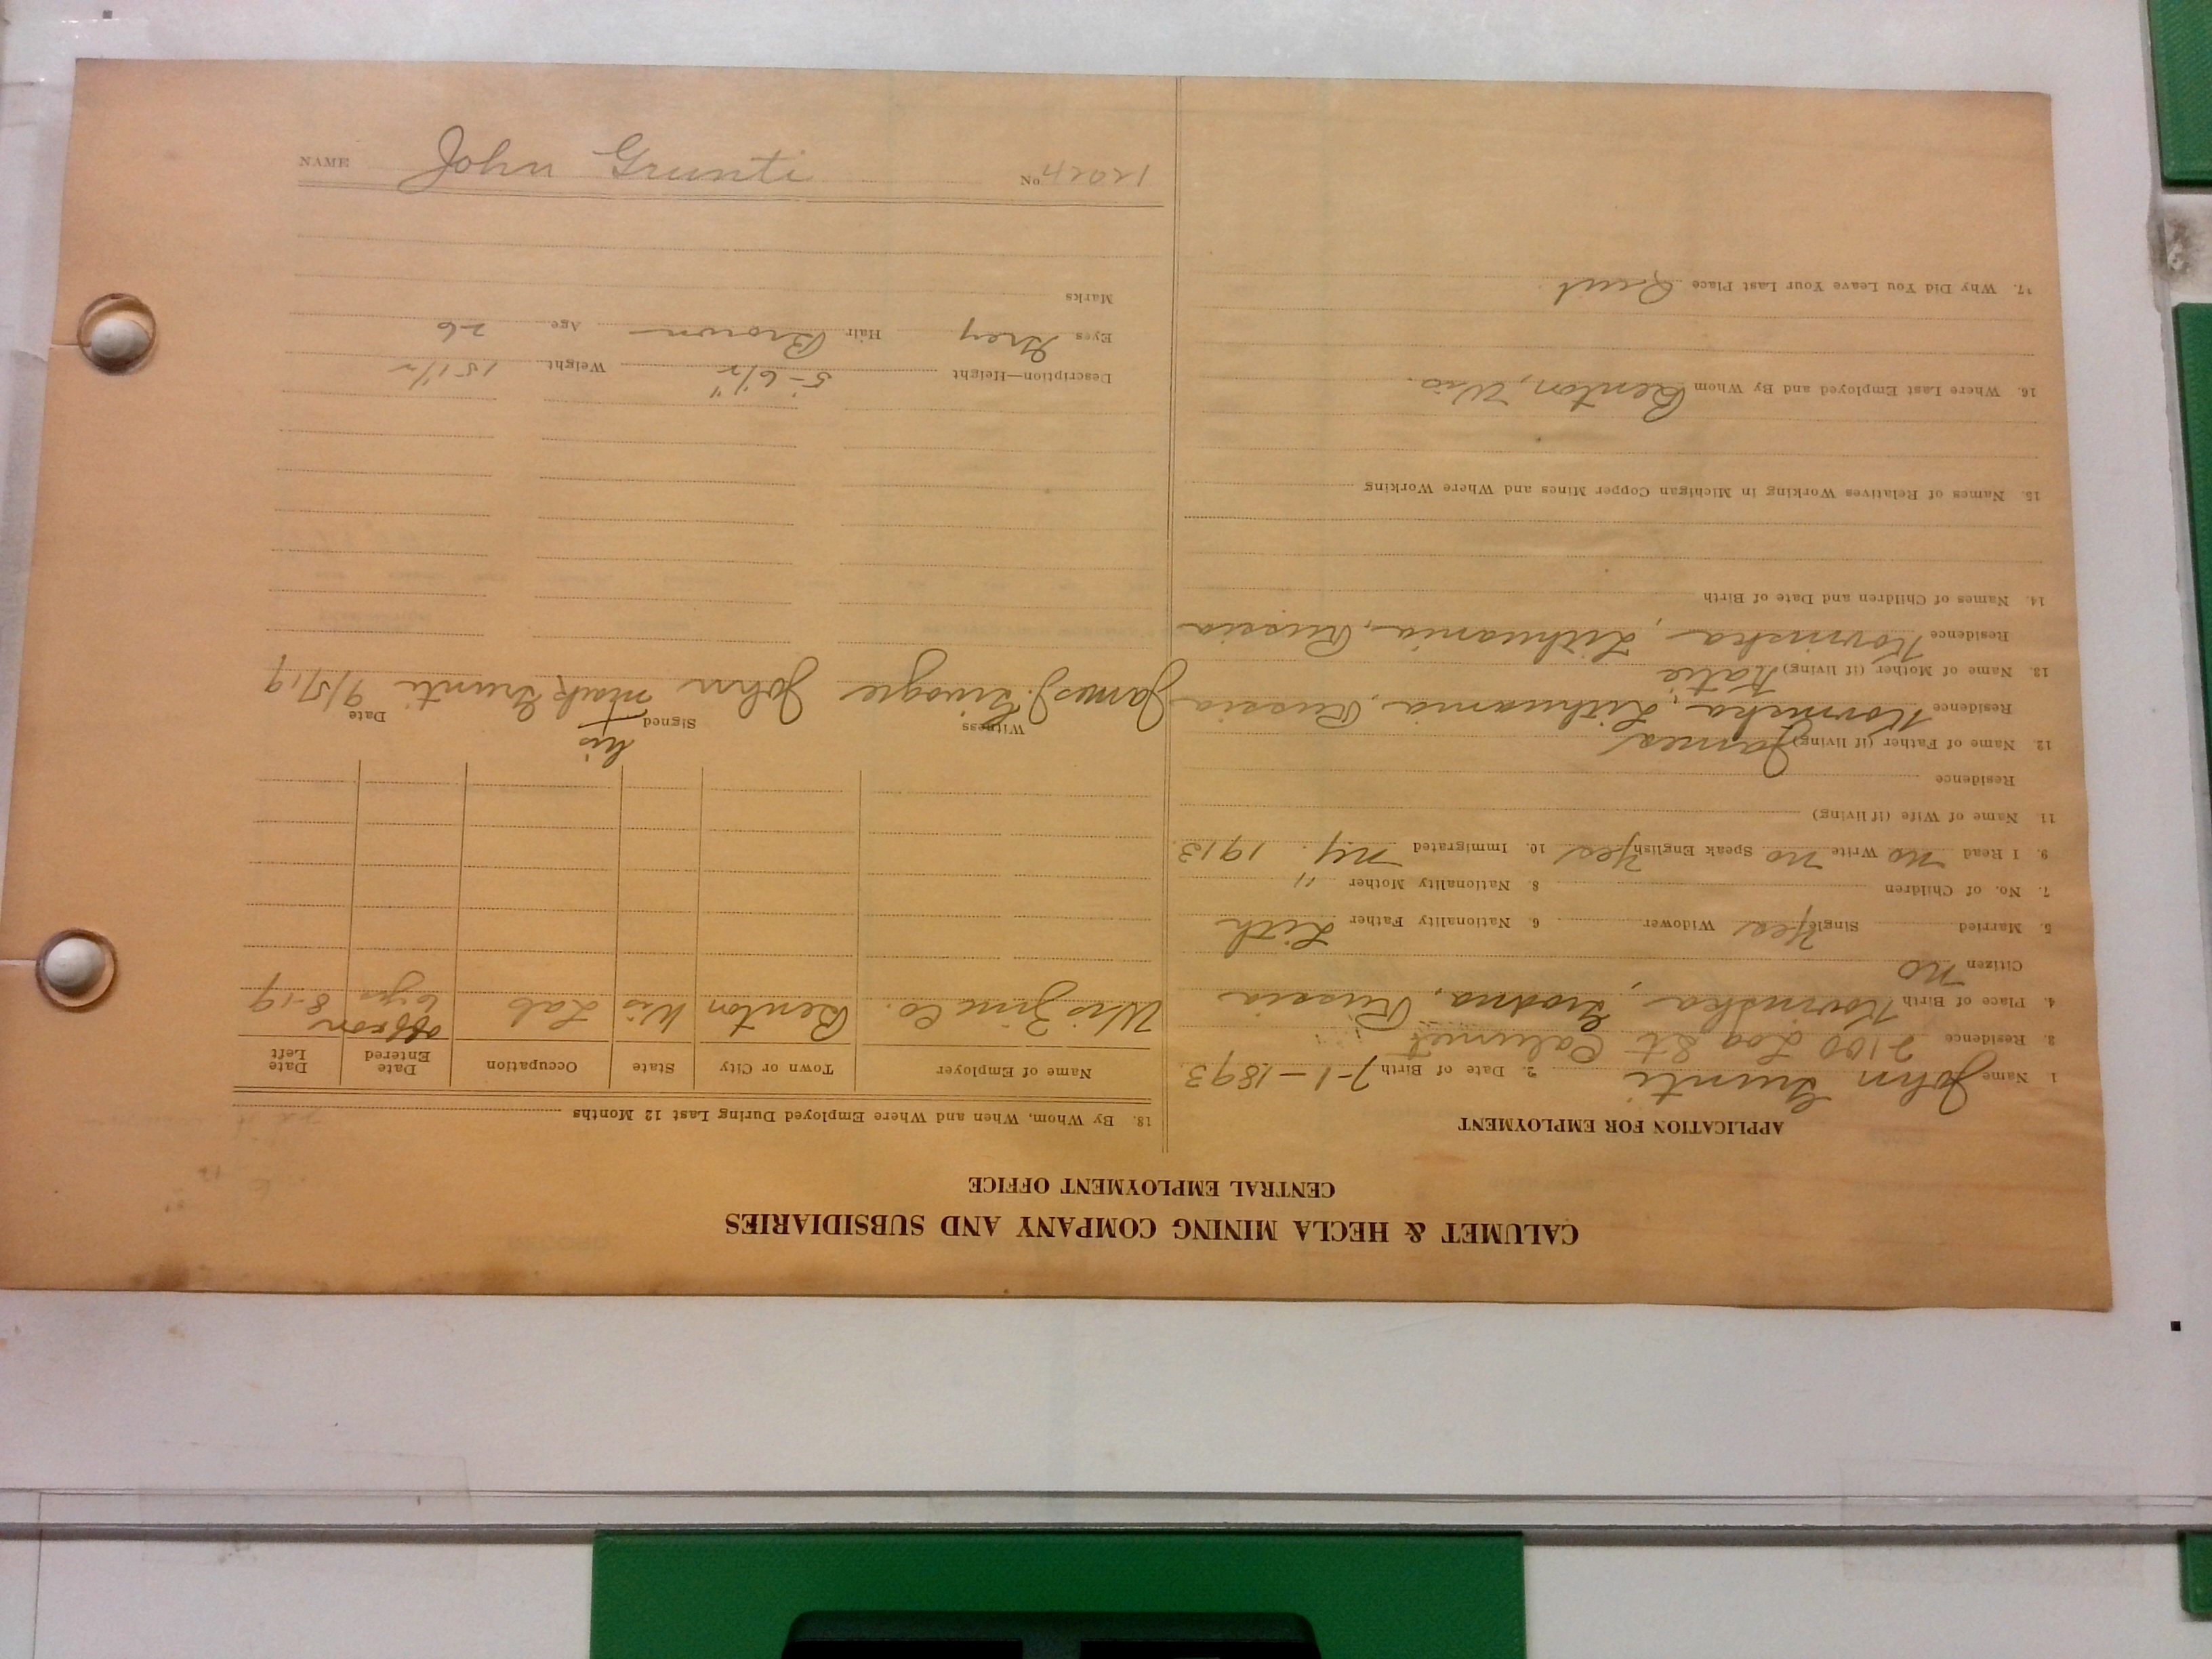 CALUMET & HECLA MINING COMPANY AND SUBSIDIARIES
CENTRAL EMPLOYMENT OFFICE
APPLICATION FOR EMPLOYMENT
1. Name John Grunti 2. Date of Birth 7-1-1893
3. Residence 2100 Log St Calumet
4. Place of Birth Kovnska, Grodna, Russia
Citizen no
5. Married Single Yes Widower 6. Nationality Father Lith
7. No. of Children 8. Nationality Mother "
9. I Read no Write no Speak English Yes 10. Immigrated N.Y. 1913
11. Name of Wife (if living)
Residence
12. Name of Father (if living) James
Residence Kovnska, Lithuania, Russia
13. Name of Mother (if living) Katie
Residence Kovnska, Lithuania, Russia
14. Names of Children and Date of Birth
15. Names of Relatives Working in Michigan Copper Mines and Where Working
16. Where Last Employed and By Whom Benton, Wis.
17. Why Did You Leave Your Last Place Quit
18. By Whom, When and Where Employed During Last 12 Months
Name of Employer Town or City State Occupation Date Entered Date Left
off & on
Wis Zinc Co. Benton Wis Lab 6 yrs 8-19
his
Witness Signed Date
James J. John mark Grunti 9/5/19
Description—Height 5'-6 1/2" Weight 151 1/2
Eyes Grey Hair Brown Age 26
Marks
NAME John Grunti
No. 12024